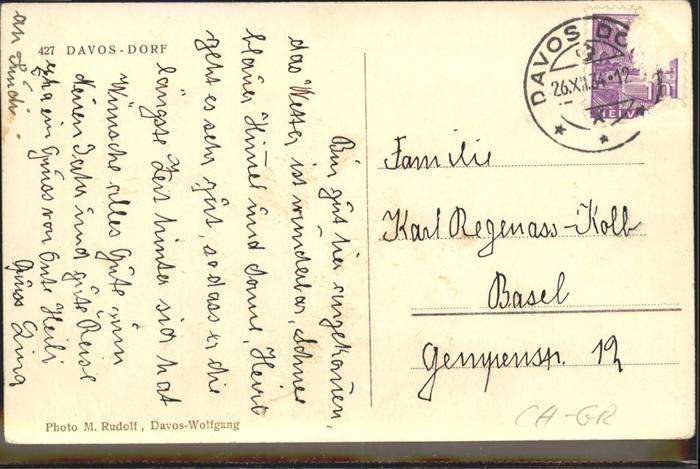 427 DAVOS-DORF
Bin gut hier angekommen,
das Wetter ist wunderbar, Schnee
blauer Himmel und Sonne, Heiri
geht es sehr gut, sodass er die
längste Zeit hinter sich hat
Wünsche alles Gute zum
neuen Jahr und gute Reise
ein Gruss von Heiri
Gruss
an
Photo M. Rudolf, Davos-Wolfgang
DAVOS DO
26.XII.34-12
HELV
Familie
Karl Regenass-Kolb
Basel
Gempenstr. 12
CH-GR